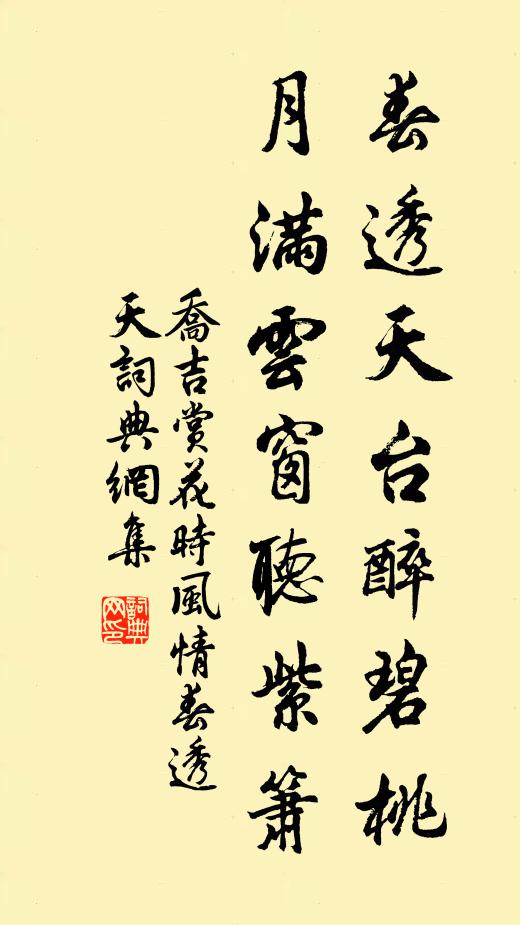 春透天台醉碧桃
月滿雲窗聽紫簫
喬吉賞花時風情春透
天詞典網集
詞典
网印